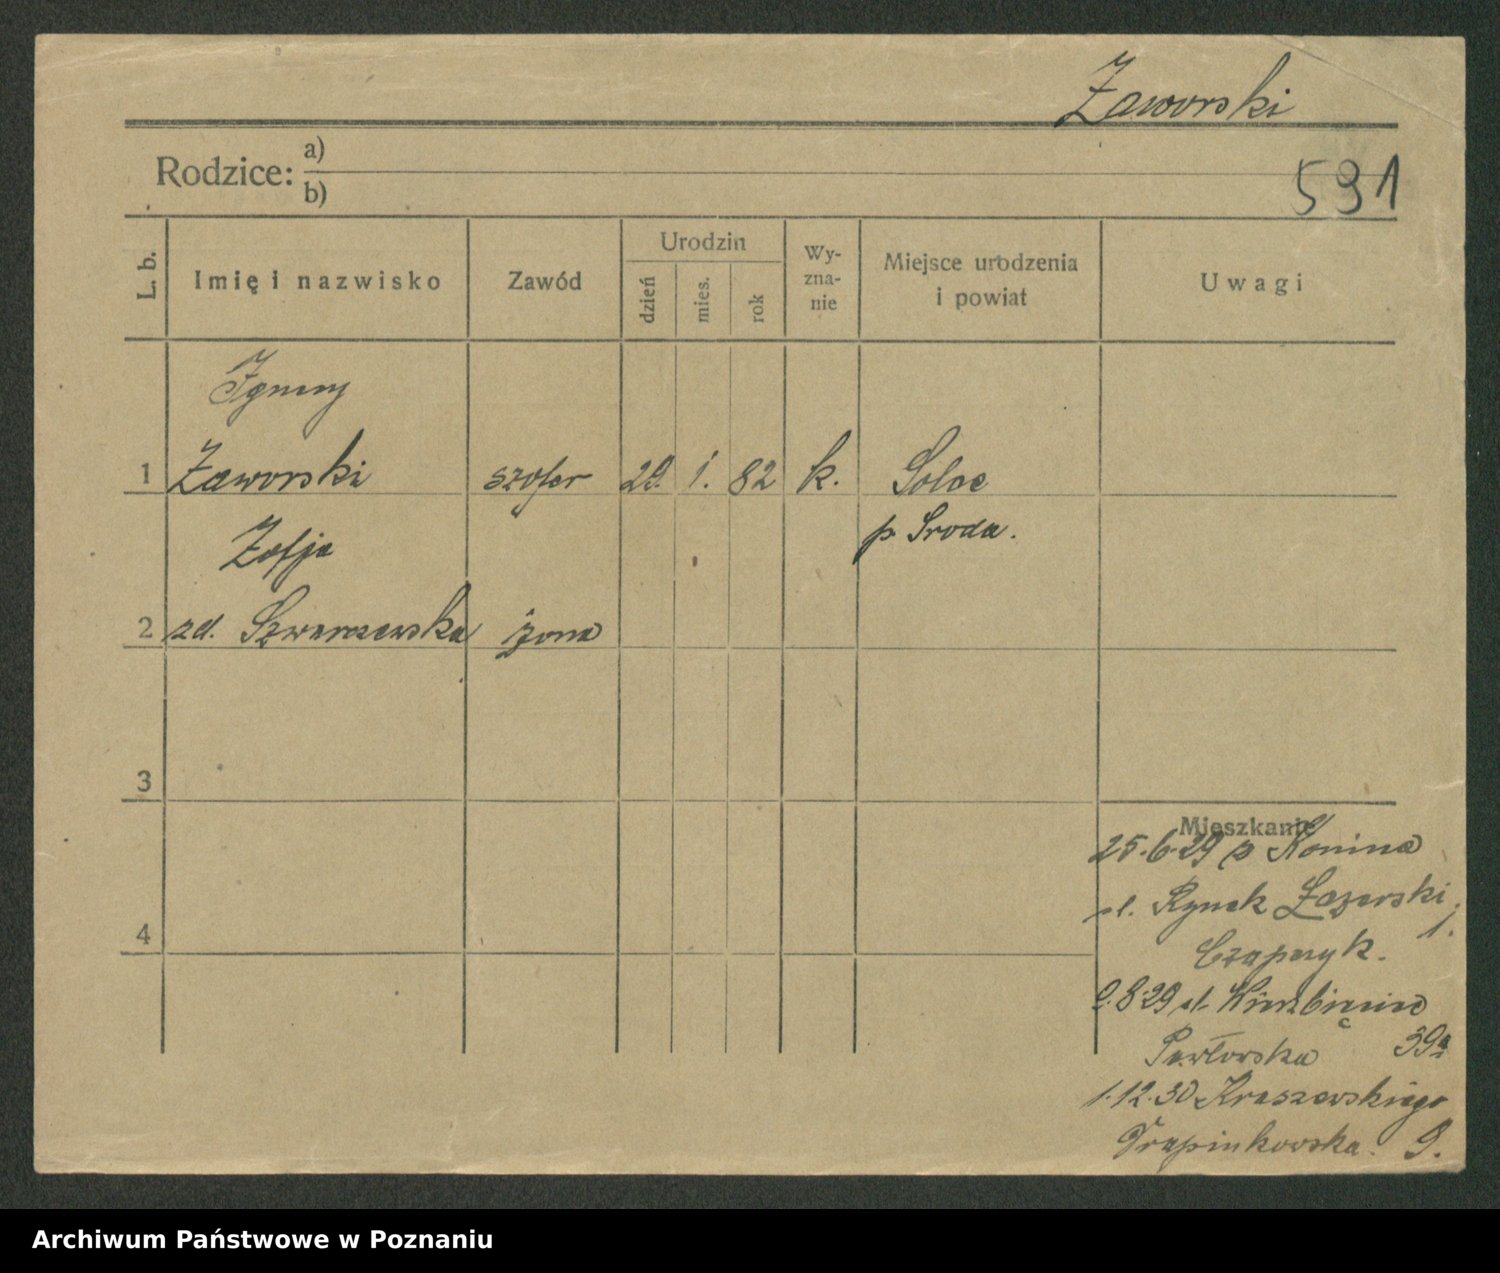 Zaworski
Rodzice: a)
b)
591
L. b.
Imię i nazwisko
Zawód
Urodzin
dzień
mies.
rok
Wy-
zna-
nie
Miejsce urodzenia
i powiat
Uwagi
Ignacy
1 Zaworski szofer 29. 1. 82 k. Solec
p. Sroda.
Zofja
2 zd. Szwarczewska żona
3
4
Mieszkanie
25.6.29 z Konina
ul. Rynek Łazarski 1.
Czapczyk.
9.8.29 ul. Wierzbięcice
Pawłowska 39a
1.12.30 Kraszewskiego
9.
Archiwum Państwowe w Poznaniu